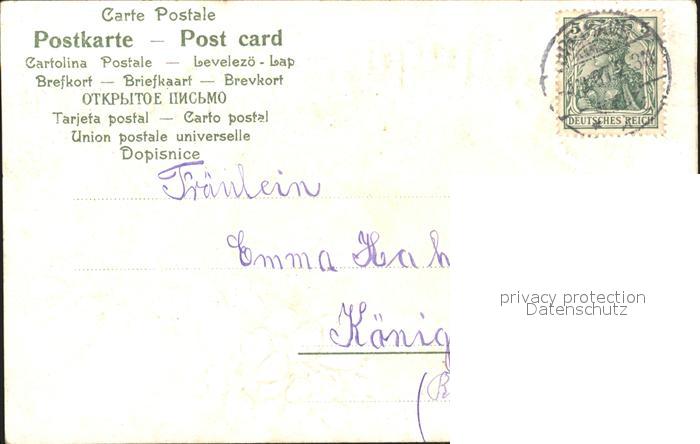 Carte Postale
Postkarte — Post card
Cartolina Postale — Levelezö - Lap
Brefkort — Briefkaart — Brevkort
ОТКРЫТОЕ ПИСЬМО
Tarjeta postal — Carto postal
Union postale universelle
Dopisnice
5 5
DEUTSCHES REICH
Fräulein
Emma Hah
privacy protection
Datenschutz
König
(B